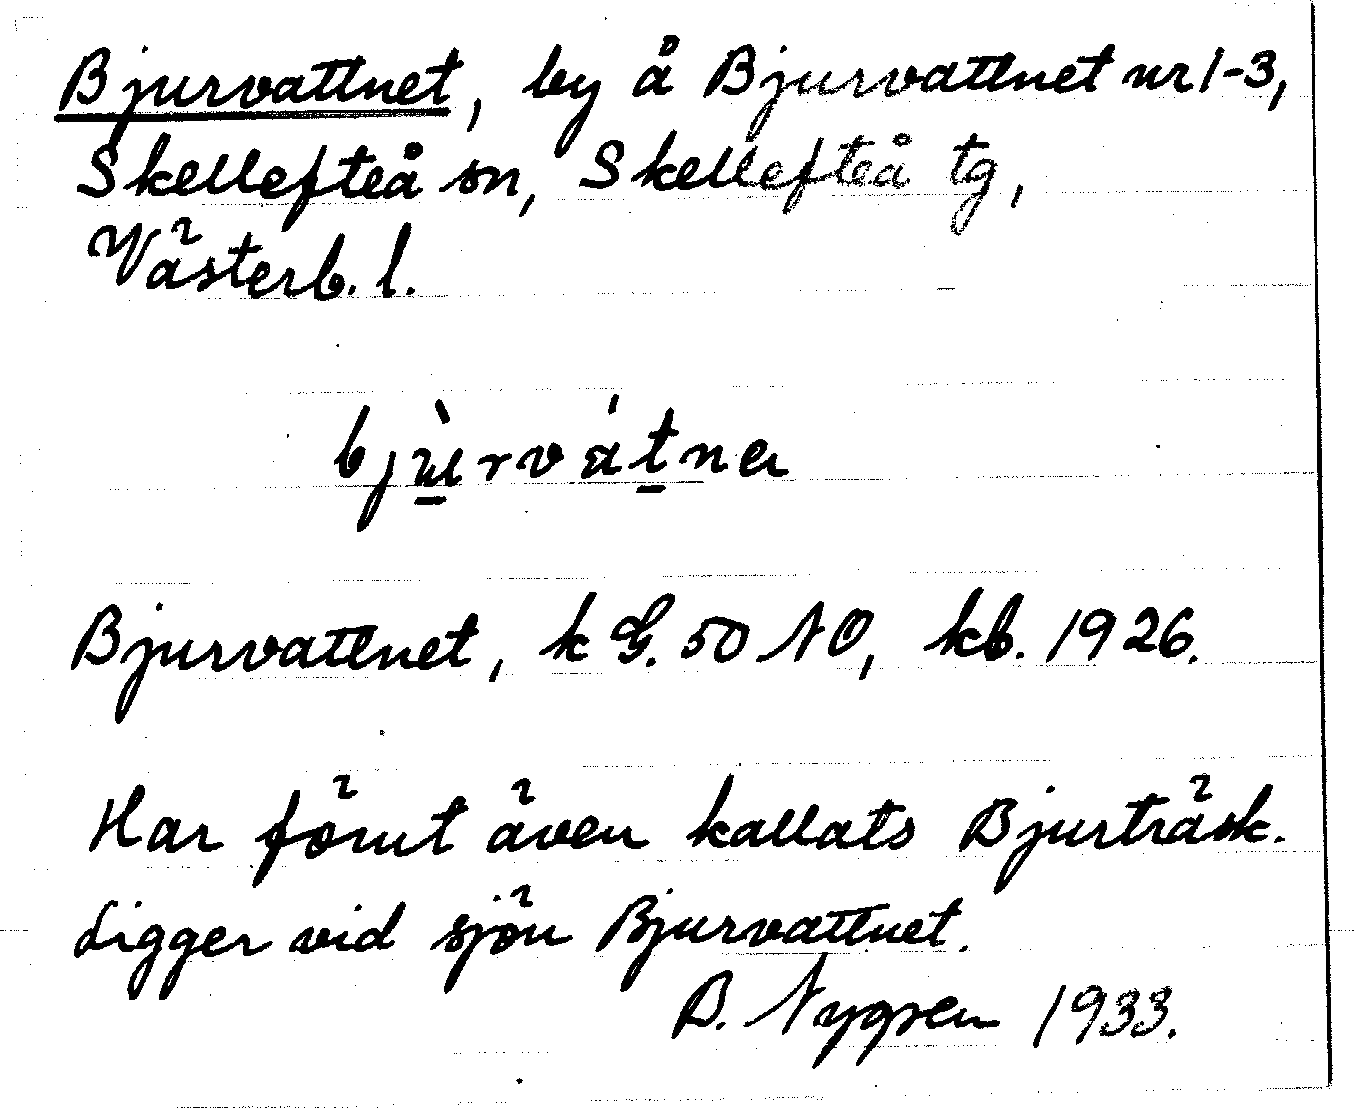 Bjurvattnet, by å Bjurvattnet nr 1-3,
Skellefteå sn, Skellefteå tg,
Västerb. l.
bjùrvátna
Bjurvattnet, k G. 50 NO, kb. 1926.
Har förut även kallats Bjurträsk.
Ligger vid sjön Bjurvattnet.
B. Nygren 1933.